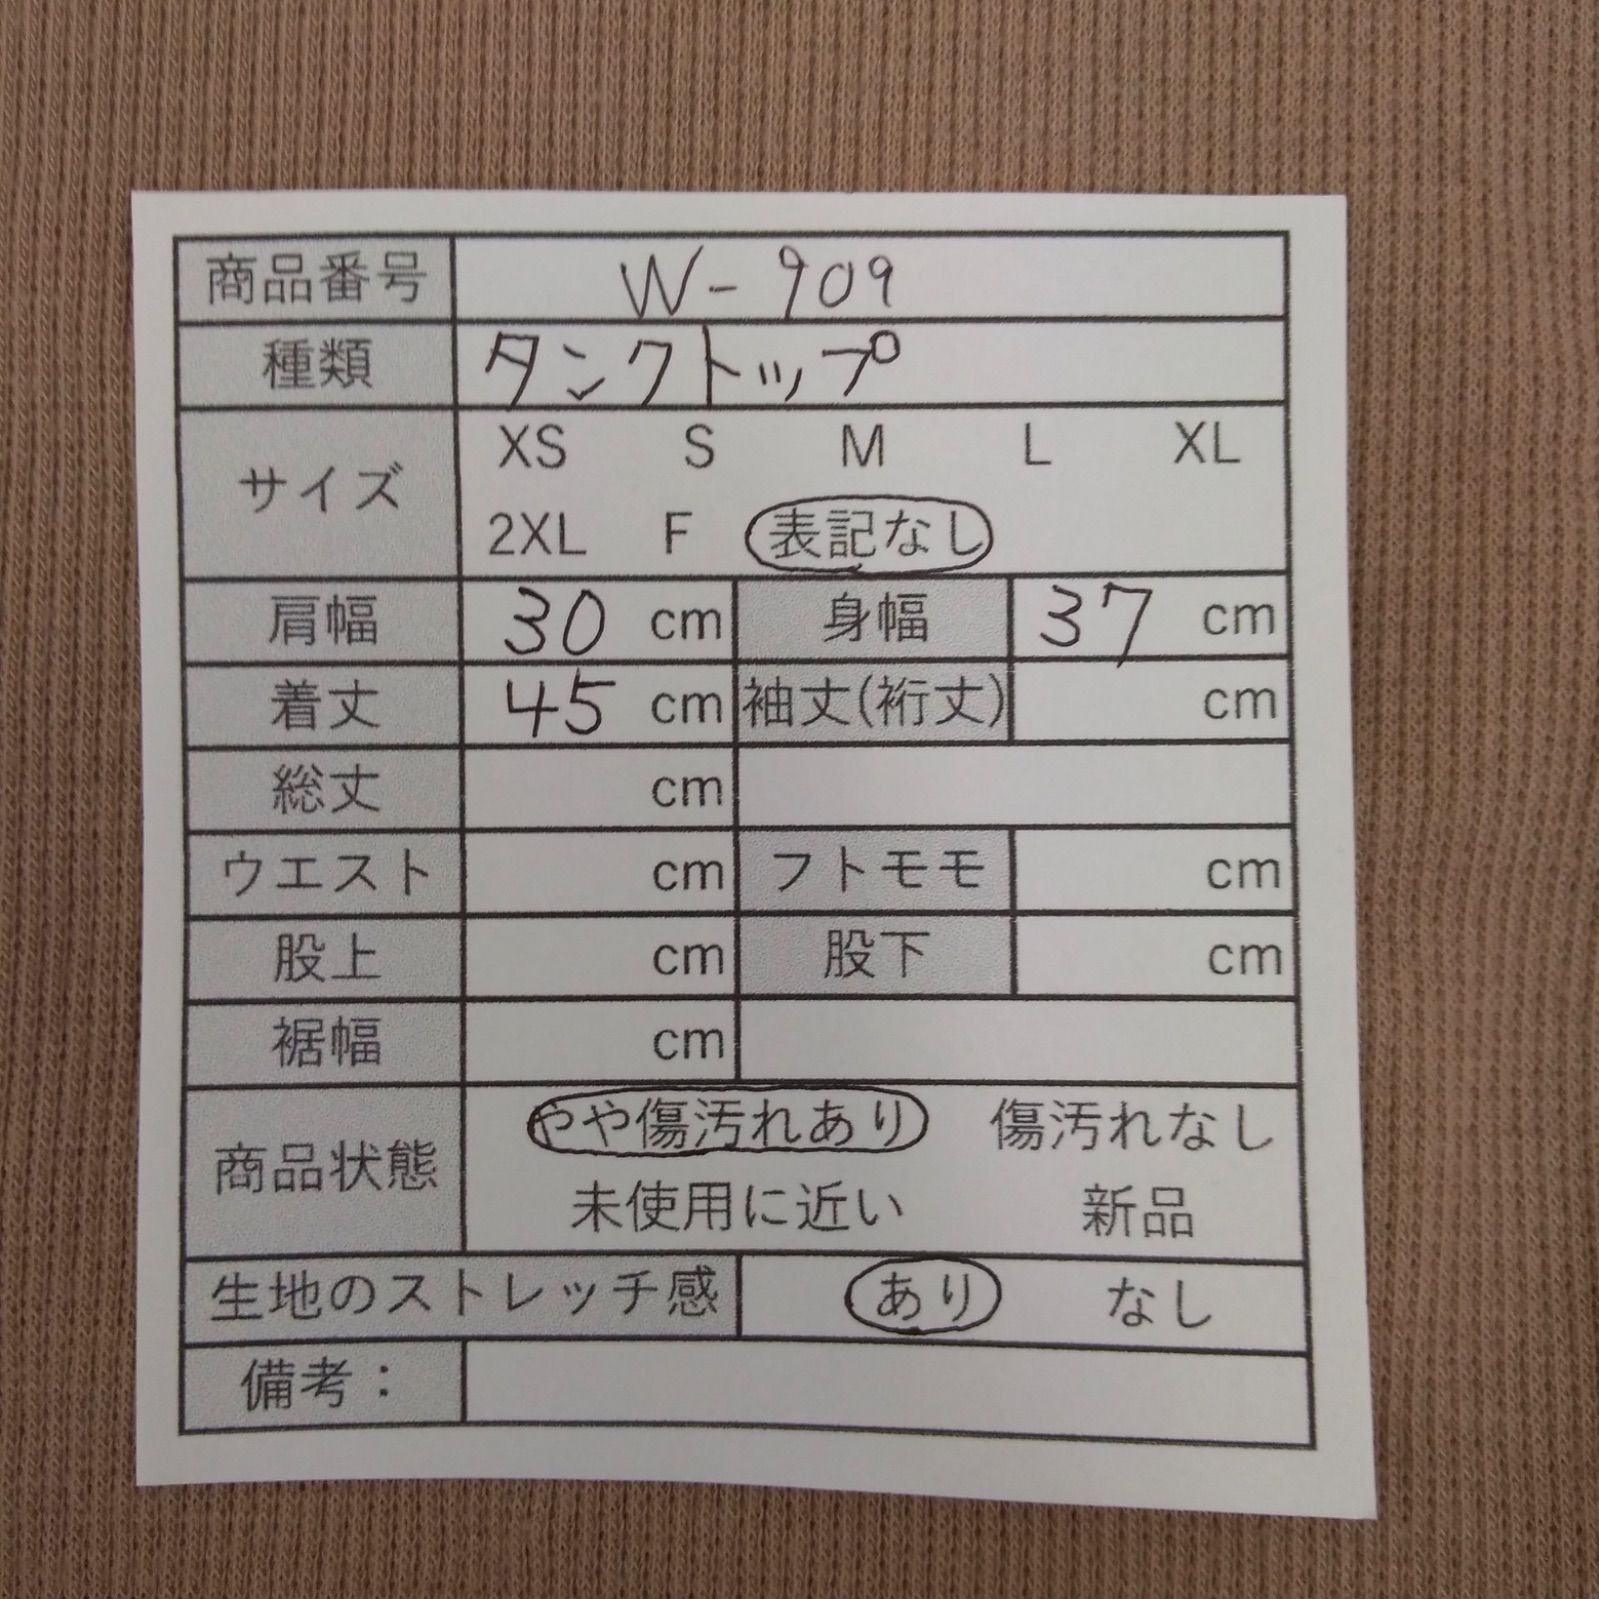 商品番号 W-909
種類 タンクトップ
サイズ XS S M L XL
2XL F 表記なし
肩幅 30 cm 身幅 37 cm
着丈 45 cm 袖丈(裄丈) cm
総丈 cm
ウエスト cm フトモモ cm
股上 cm 股下 cm
裾幅 cm
商品状態 やや傷汚れあり 傷汚れなし
未使用に近い 新品
生地のストレッチ感 あり なし
備考：